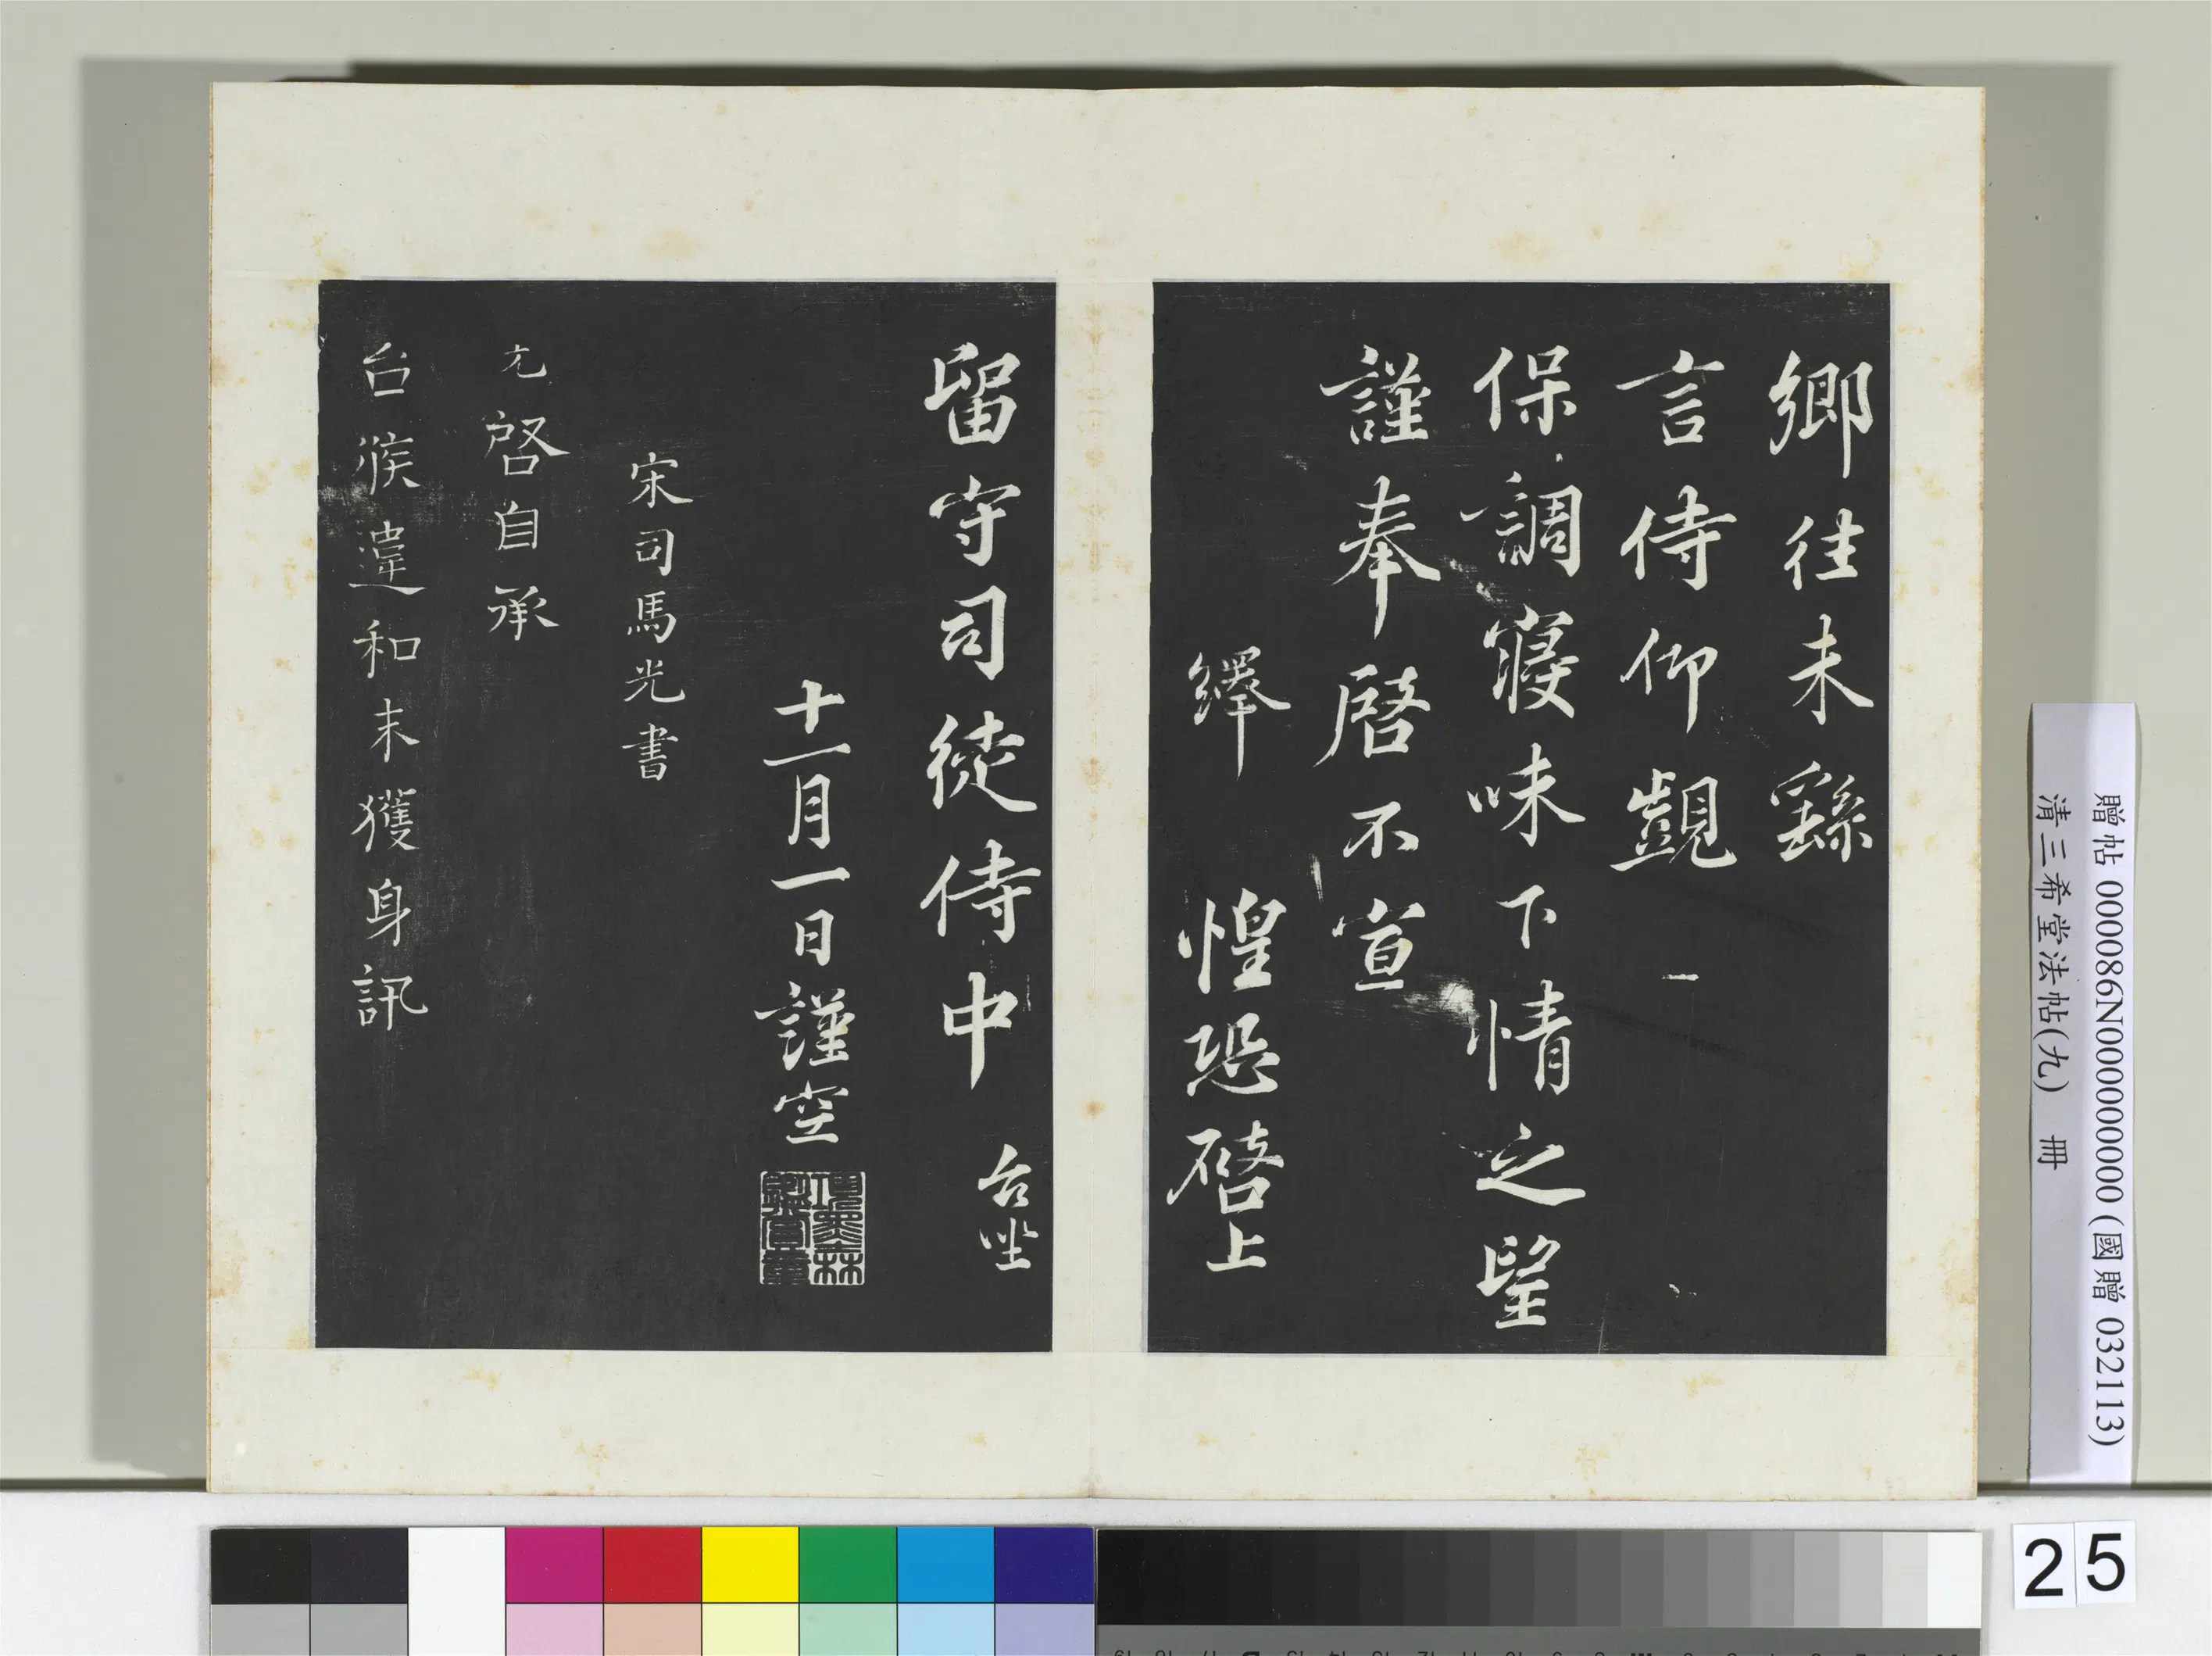 鄉往未繇
言侍仰覬
保調寢味下情之望
謹奉啓不宣
繹 惶恐啓上
留守司徒侍中 台坐
十一月一日謹空
宋司馬光書
光啓自承
台候違和未獲身訊
贈帖 000086N000000000 (國贈 032113)
清三希堂法帖(九) 冊
25